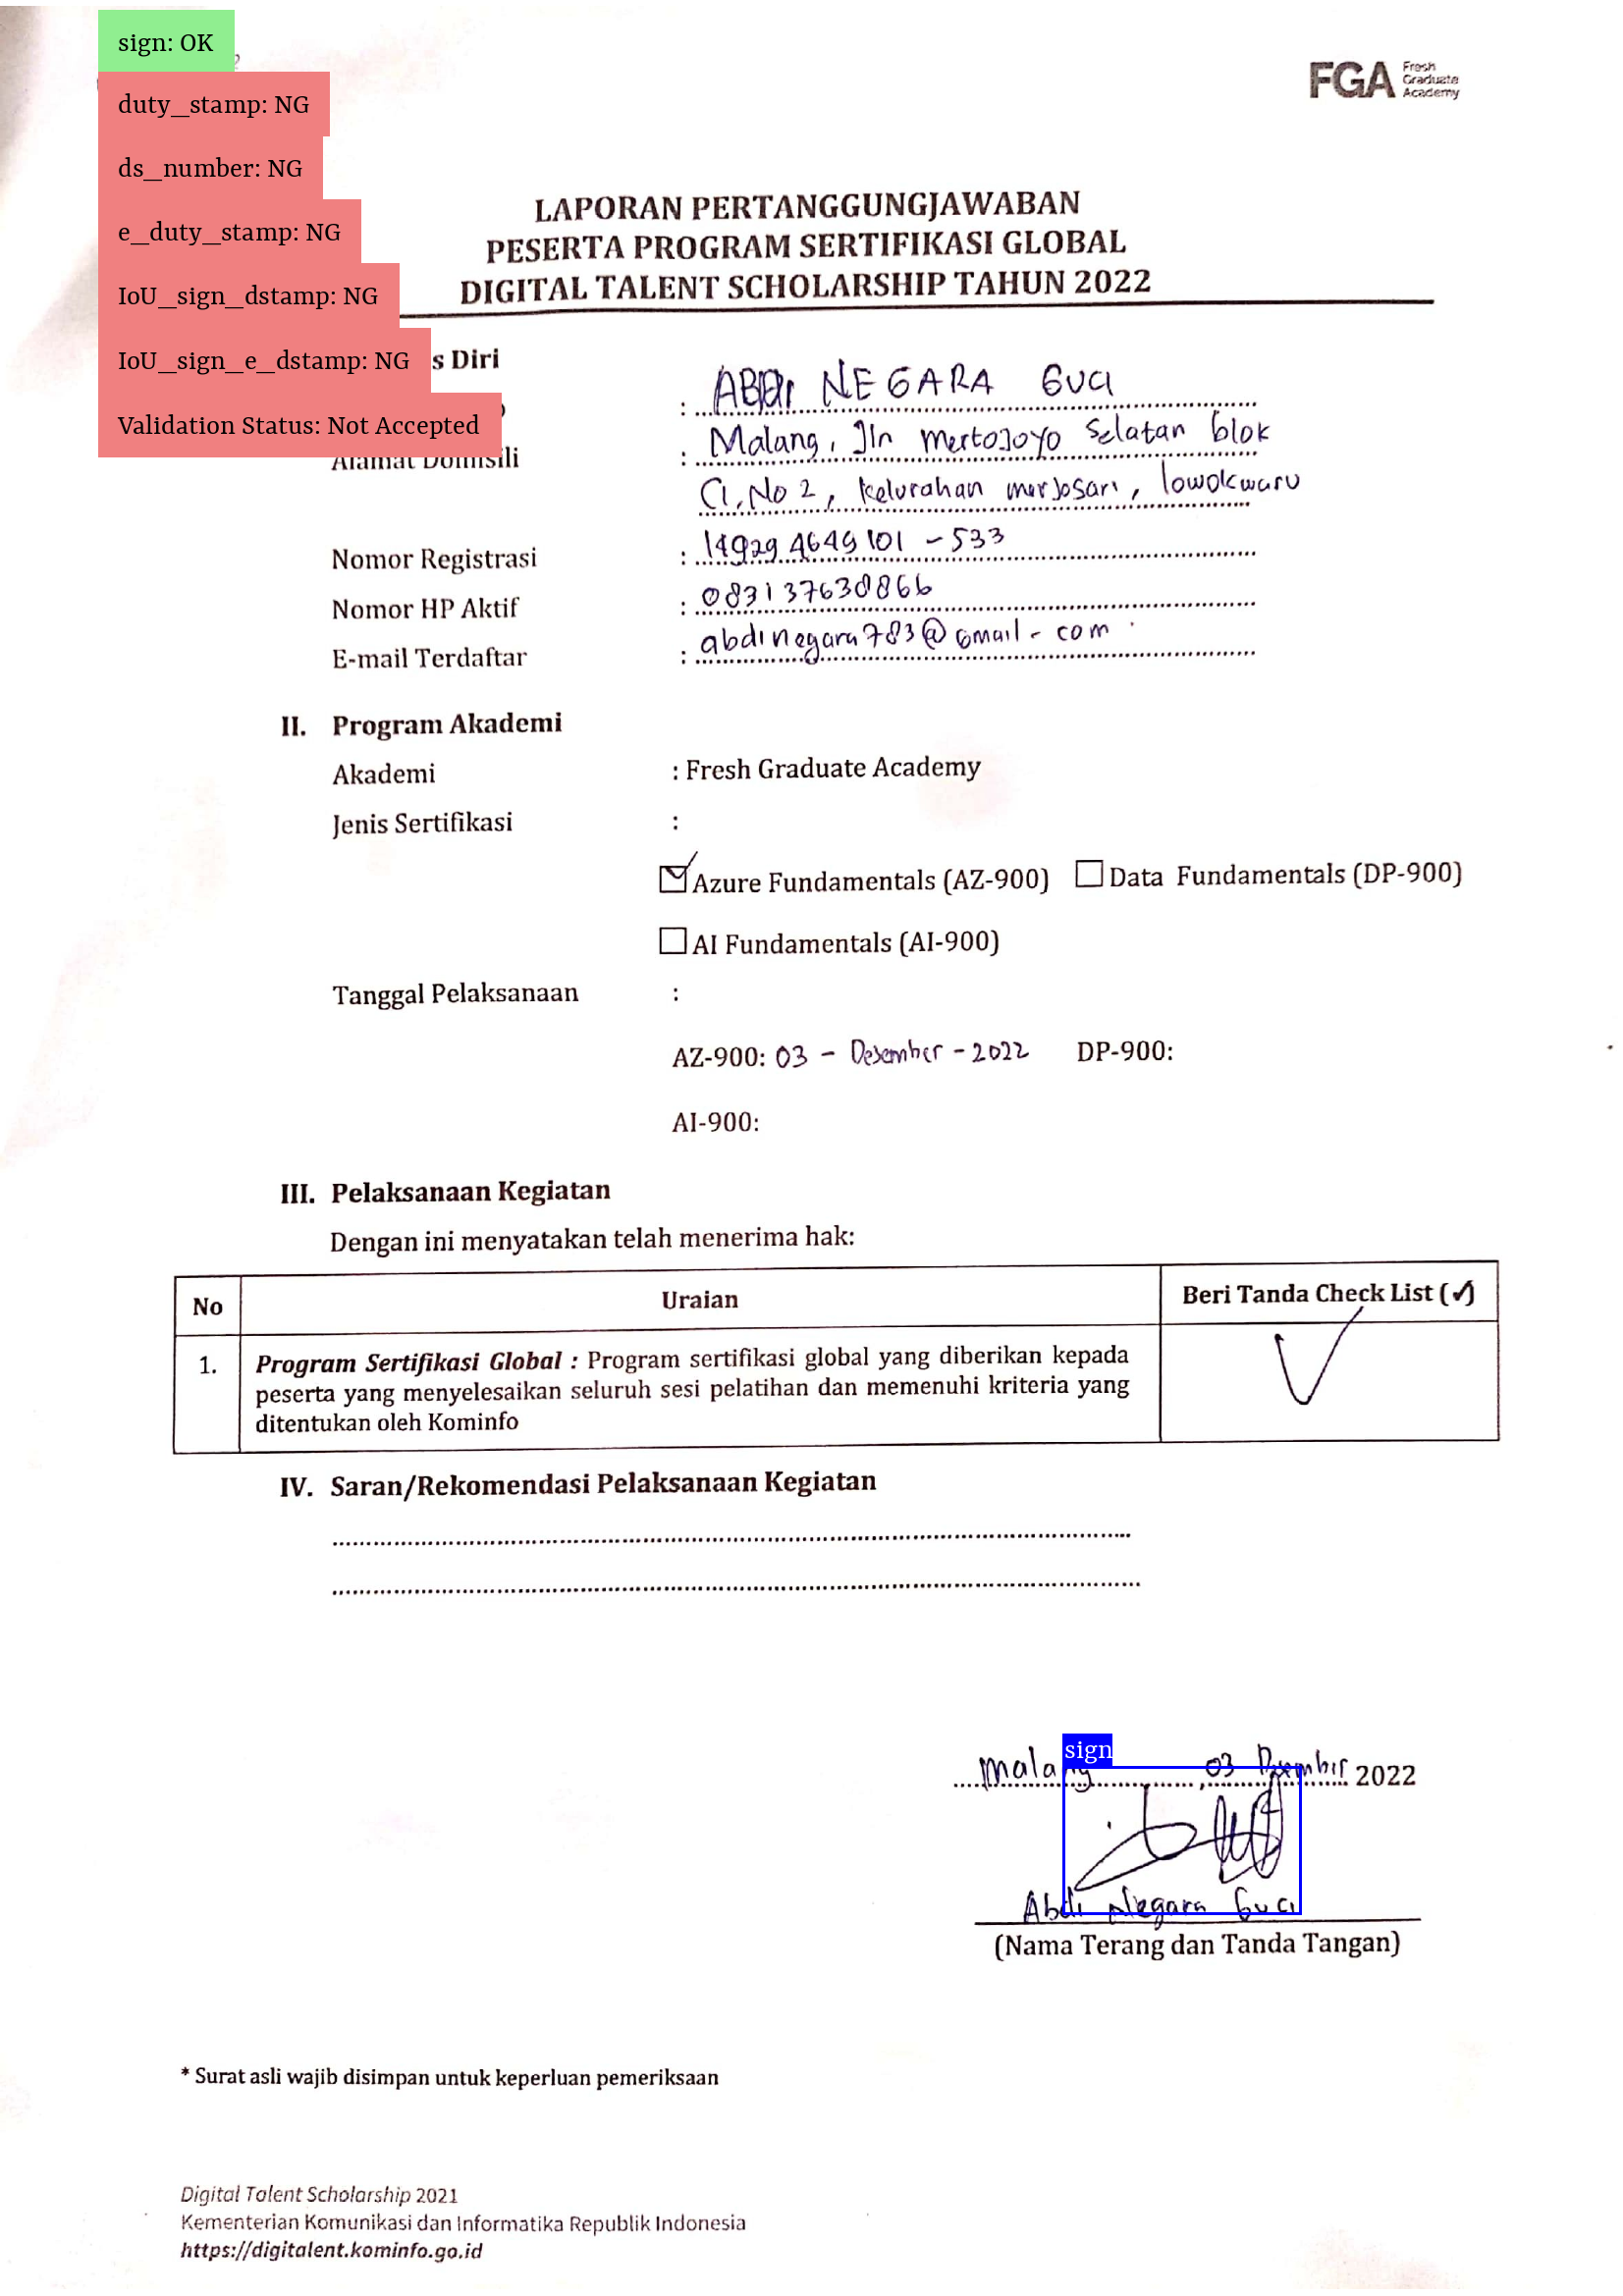 sign: OK
duty_stamp: NG
ds_number: NG
e_duty_stamp: NG
IoU_sign_dstamp: NG
IoU_sign_e_dstamp: NG
Validation Status: Not Accepted
FGA Fresh Graduate Academy
LAPORAN PERTANGGUNGJAWABAN
PESERTA PROGRAM SERTIFIKASI GLOBAL
DIGITAL TALENT SCHOLARSHIP TAHUN 2022
s Diri
: ABDI NEGARA GUCI
Alamat Domisili : Malang, Jln mertojoyo Selatan blok
C1, No 2, kelurahan merjosari, lowokwaru
Nomor Registrasi : 149294649101 - 533
Nomor HP Aktif : 083137630866
E-mail Terdaftar : abdinegara783@gmail-com
II. Program Akademi
Akademi : Fresh Graduate Academy
Jenis Sertifikasi :
Azure Fundamentals (AZ-900) Data Fundamentals (DP-900)
AI Fundamentals (AI-900)
Tanggal Pelaksanaan :
AZ-900: 03 - Desember - 2022 DP-900:
AI-900:
III. Pelaksanaan Kegiatan
Dengan ini menyatakan telah menerima hak:
No Uraian Beri Tanda Check List (✓)
1. Program Sertifikasi Global : Program sertifikasi global yang diberikan kepada
peserta yang menyelesaikan seluruh sesi pelatihan dan memenuhi kriteria yang
ditentukan oleh Kominfo
IV. Saran/Rekomendasi Pelaksanaan Kegiatan
sign
Malang, 03 Desember 2022
Abdi Negara Guci
(Nama Terang dan Tanda Tangan)
* Surat asli wajib disimpan untuk keperluan pemeriksaan
Digital Talent Scholarship 2021
Kementerian Komunikasi dan Informatika Republik Indonesia
https://digitalent.kominfo.go.id